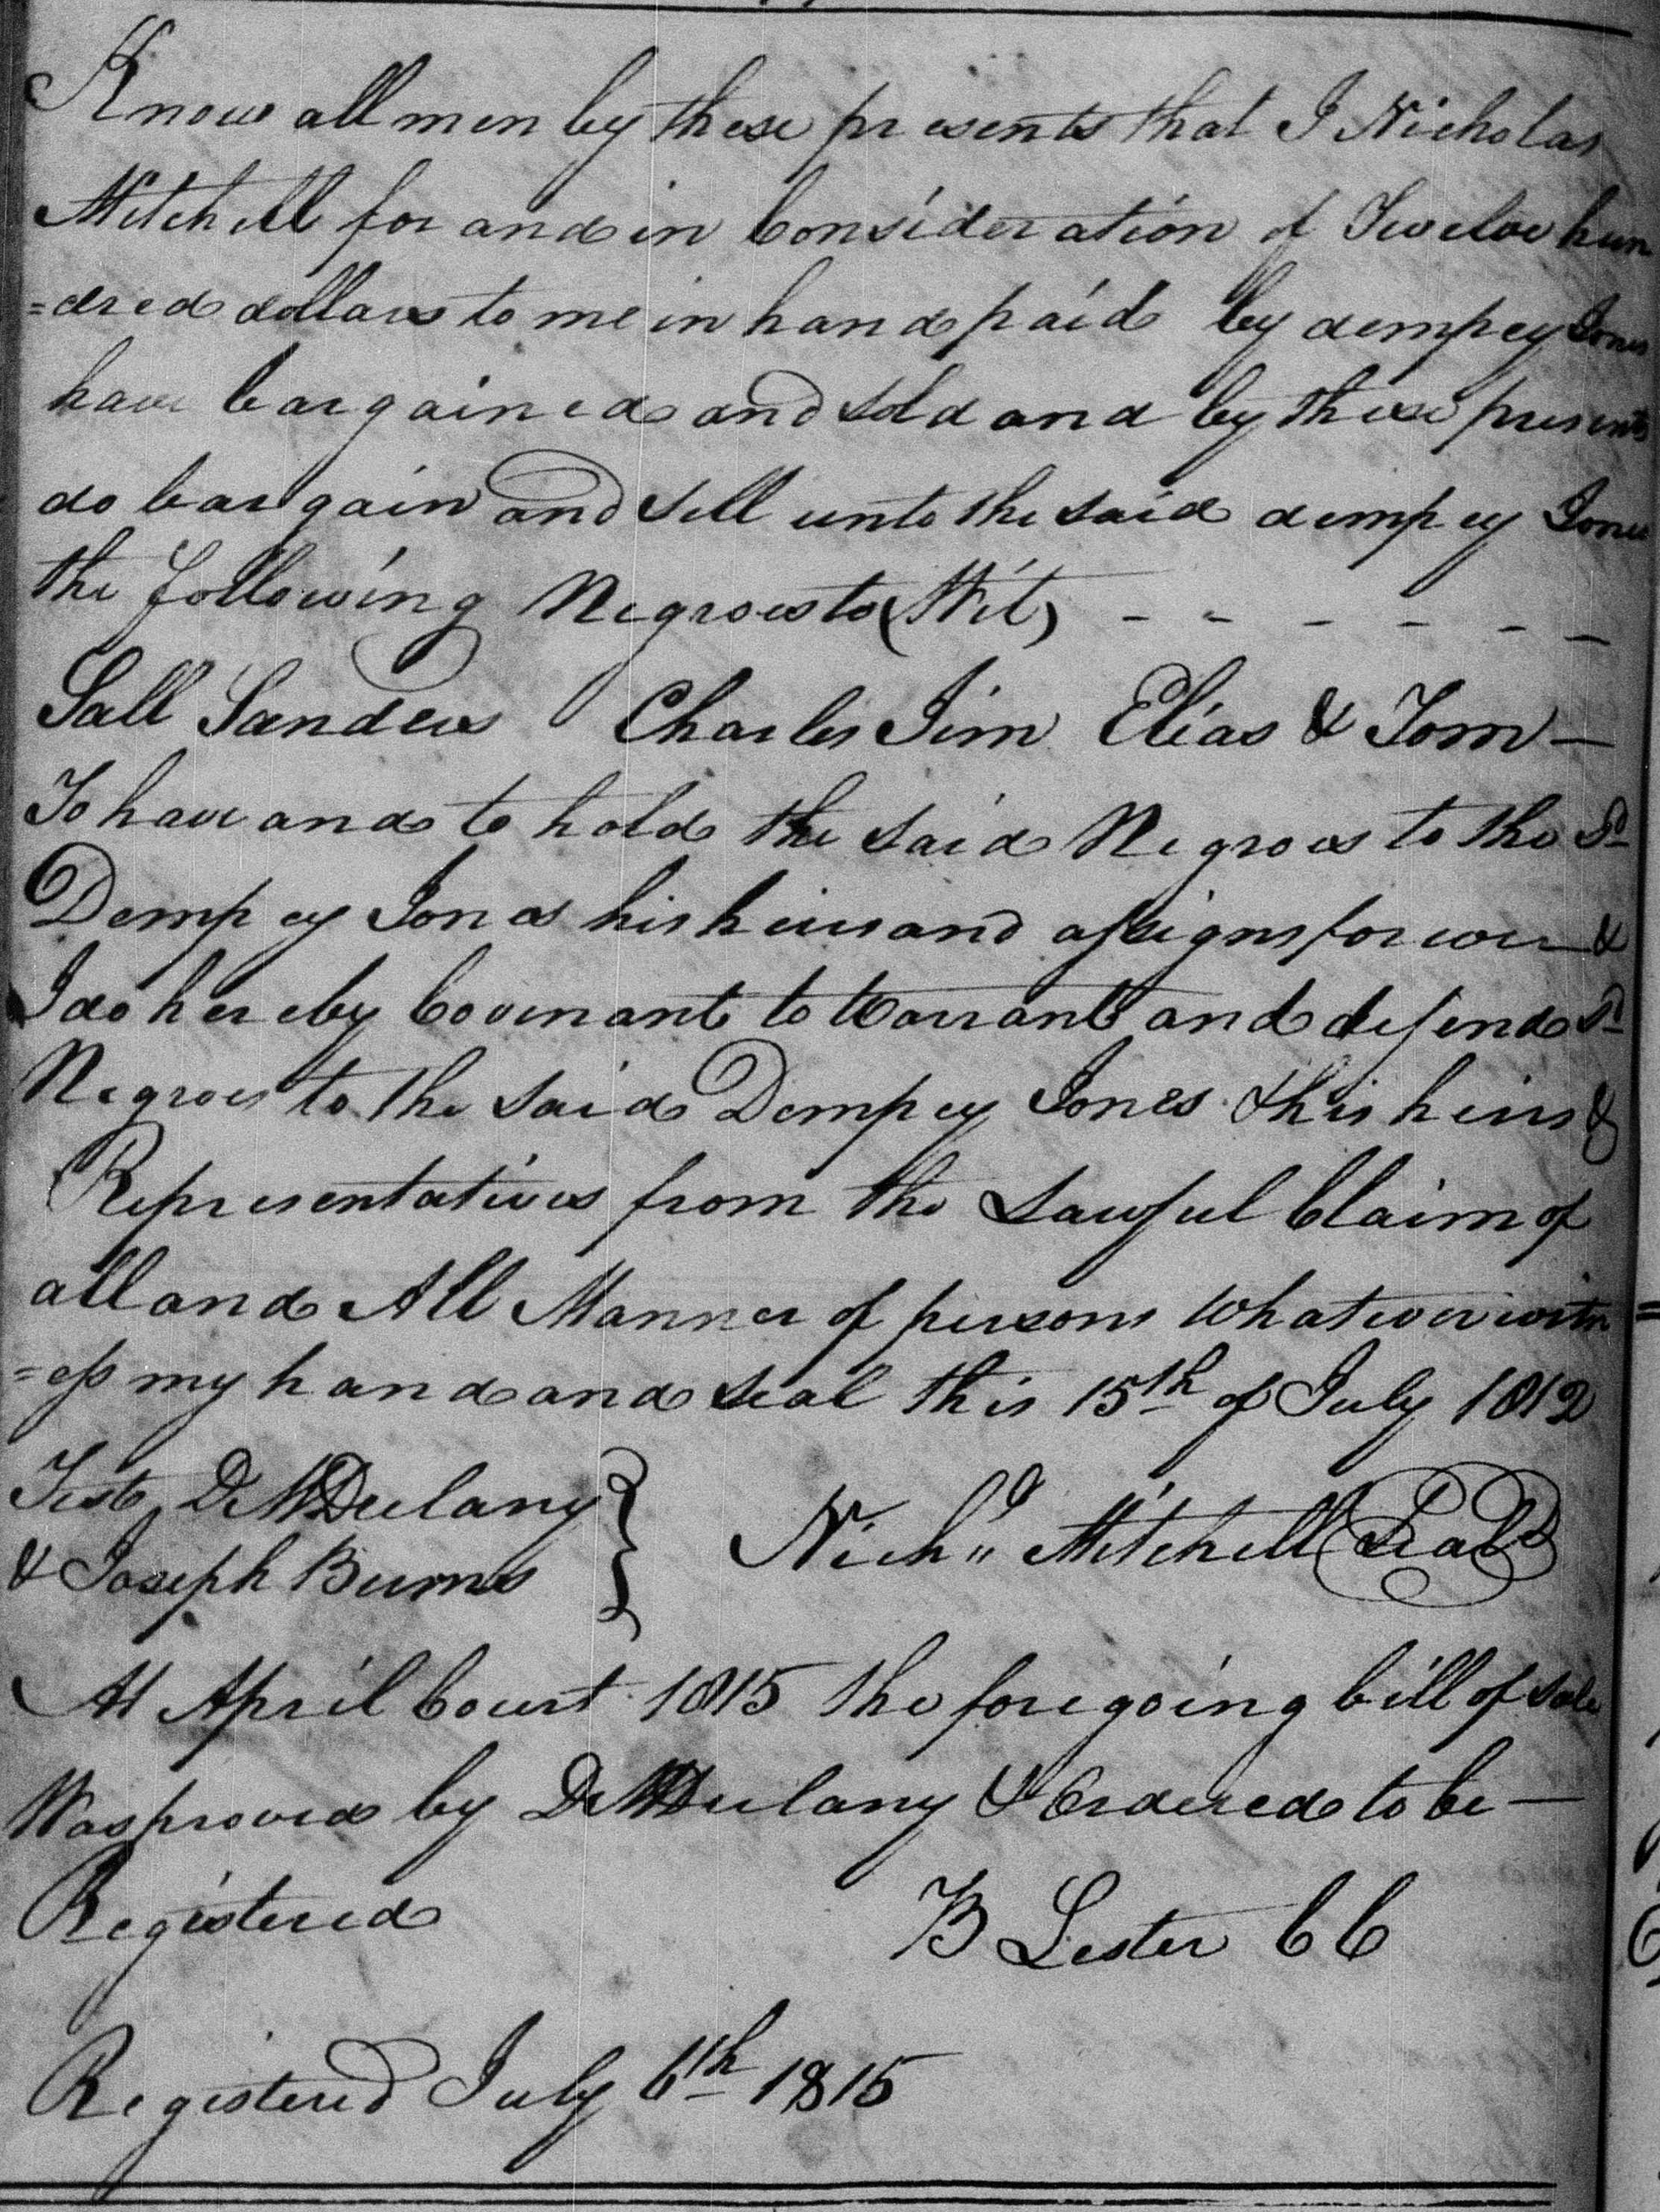 Know all men by these presents that I Nicholas
Mitchell for and in Consideration of Twelve hun
=dred dollars to me in hand paid by dempcy Jones
have bargained and sold and by these presents
do bargain and sell unto the said dempcy Jones
the following Negroes to (Wit) - - - - - -
Sall Sanders Charles Jim Elias & Tom —
To have and to hold the said Negroes to the Sd
Dempcy Jones his heirs and assigns forever &
I do hereby Covenant to Warrant and defend Sd
Negroes to the said Dempcy Jones & his heirs &
Representatives from the Lawful Claim of
all and All Manner of persons Whatever witn
=ess my hand and seal this 15th of July 1812
Test, D. McDulany
& Joseph Burns
Nich.o Mitchell (Seal)
At April Court 1815 the foregoing bill of sale
Was proved by D McDulany & Ordered to be —
Registered
B Lester CC
Registered July 6th 1815